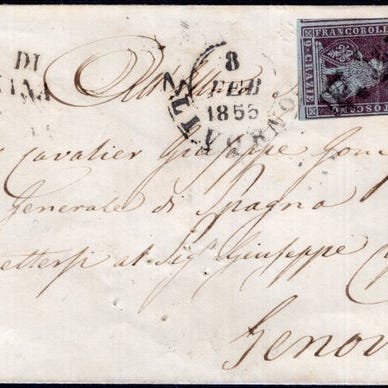 DI
8
FEB
1855
LIVORNO
FRANCOBOLLO
9 CRAZIE
TOSCANO
Cavalier Giuseppe Gom
Generale di Spagna
al Sig.r Giuseppe
Genov